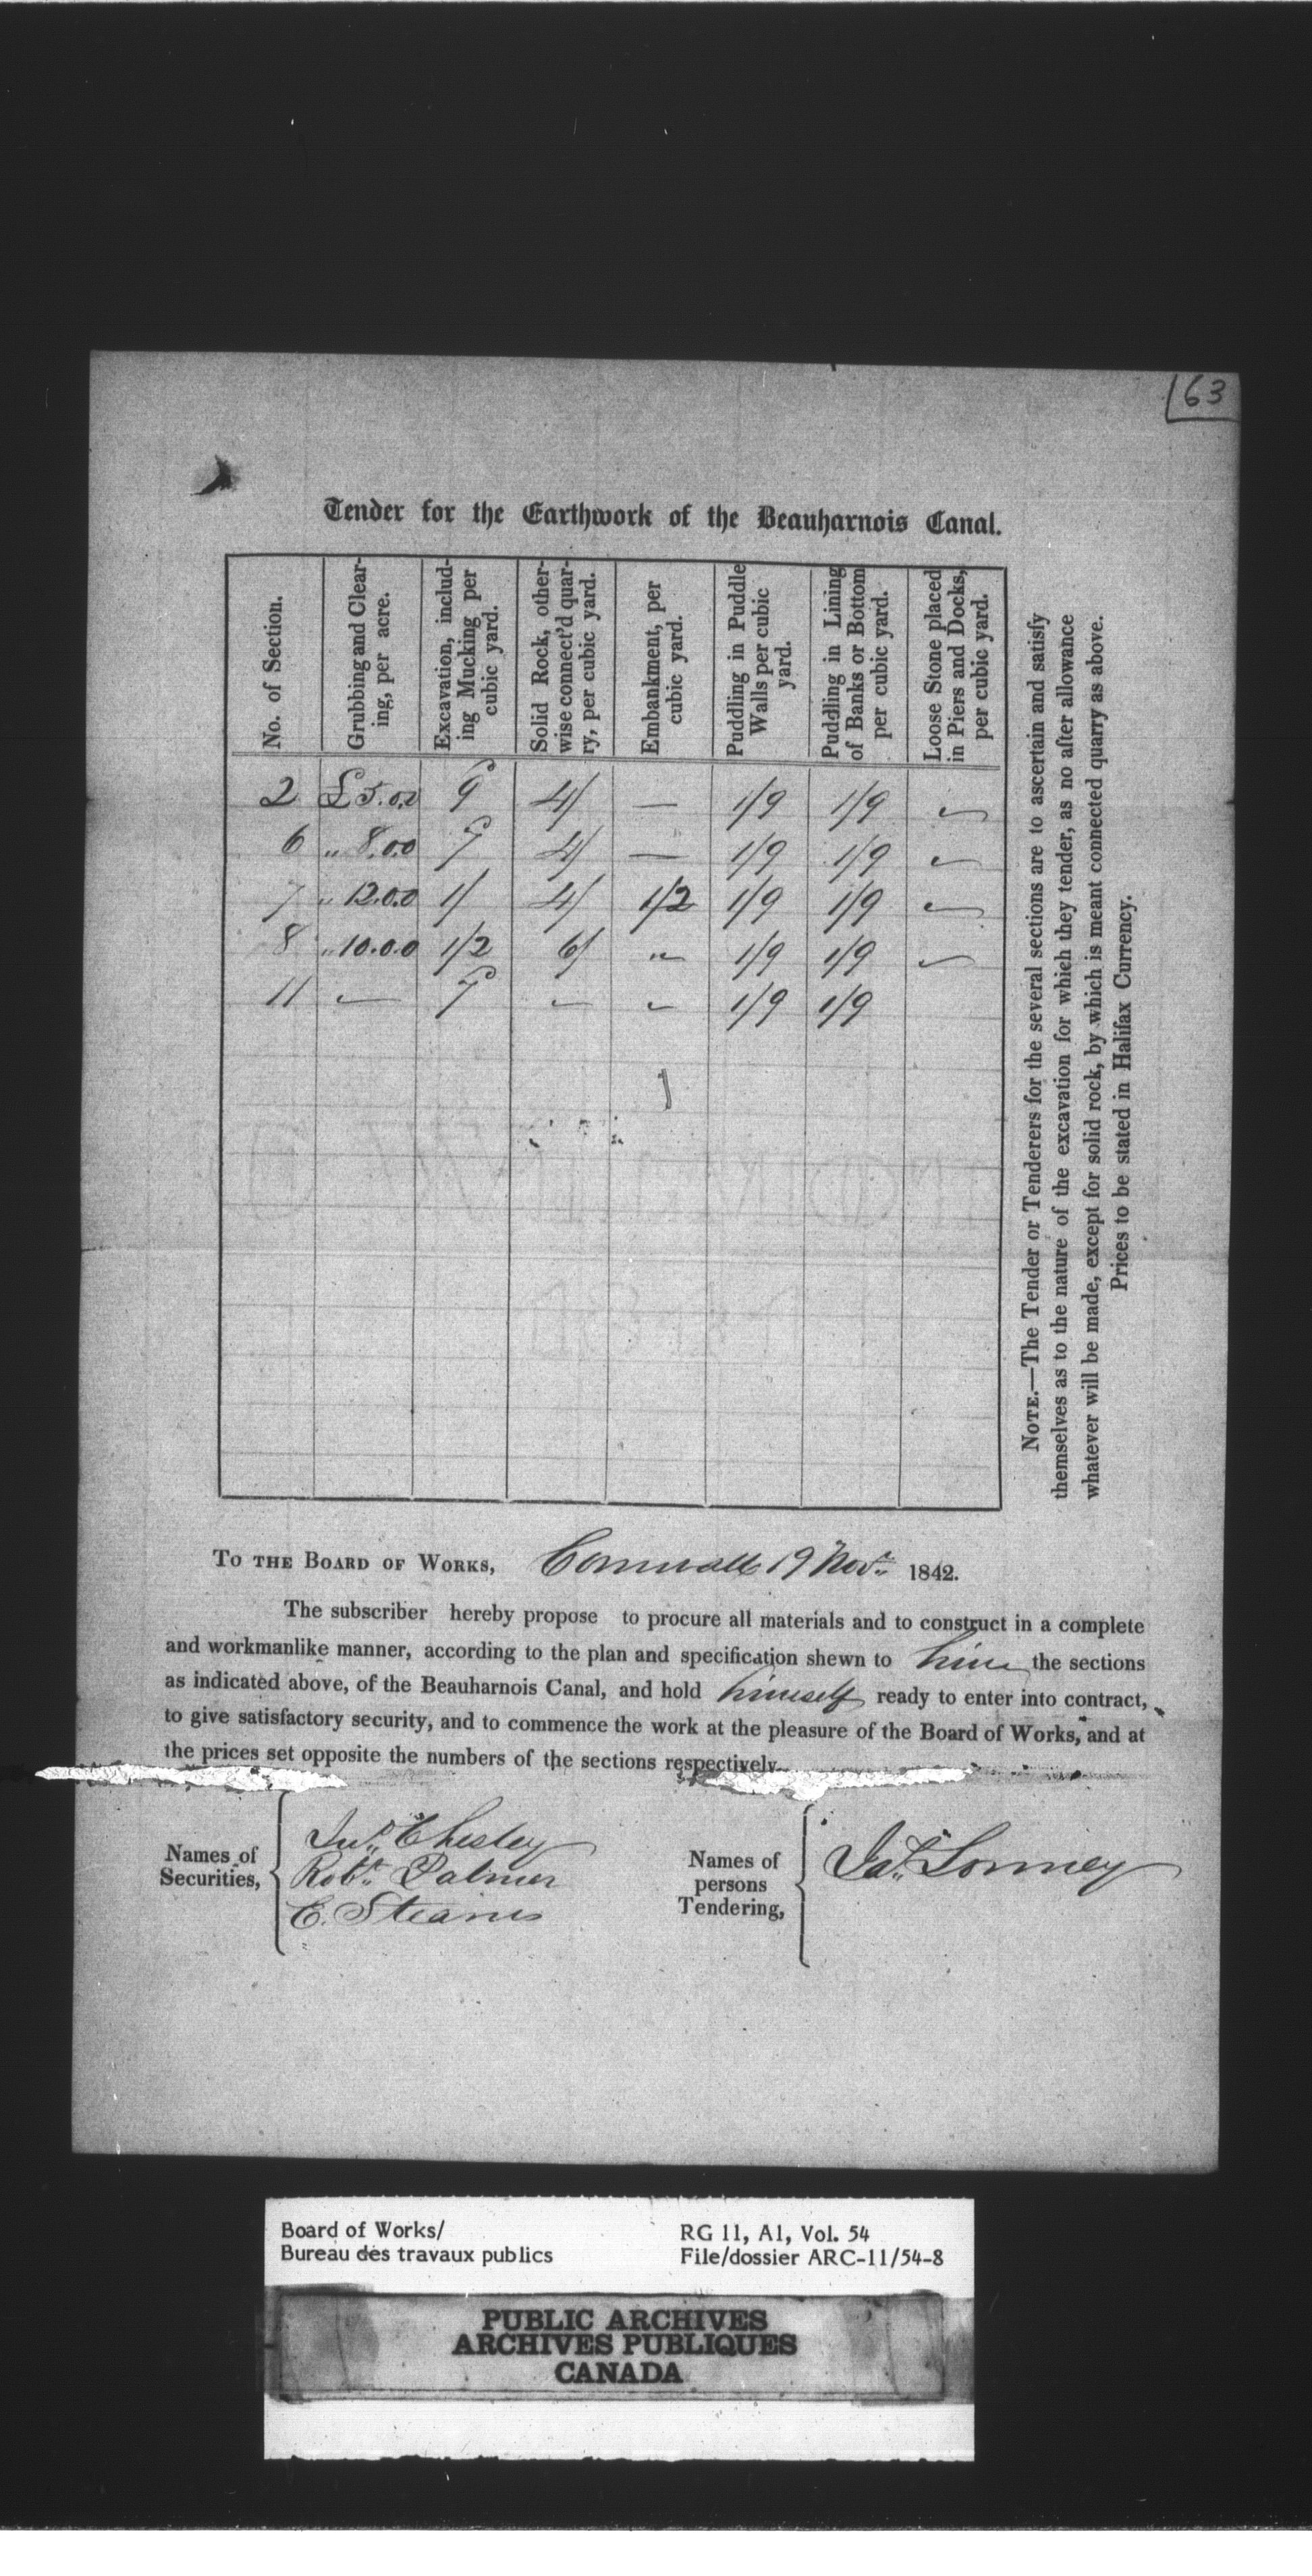 163
Tender for the Earthwork of the Beauharnois Canal.
No. of Section.
Grubbing and Clear-
ing, per acre.
Excavation, includ-
ing Mucking per
cubic yard.
Solid Rock, other-
wise connect'd quar-
ry, per cubic yard.
Embankment, per
cubic yard.
Puddling in Puddle
Walls per cubic
yard.
Puddling in Lining
of Banks or Bottom
per cubic yard.
Loose Stone placed
in Piers and Docks,
per cubic yard.
2 £5.0.0 9 4/ — 1/9 1/9 "
6 " 8.0.0 9 4/ — 1/9 1/9 "
7 " 12.0.0 1/ 4/ 1/2 1/9 1/9 "
8 " 10.0.0 1/2 6/ " 1/9 1/9 "
11 " " " 1/9 1/9
NOTE.—The Tender or Tenderers for the several sections are to ascertain and satisfy
themselves as to the nature of the excavation for which they tender, as no after allowance
whatever will be made, except for solid rock, by which is meant connected quarry as above.
Prices to be stated in Halifax Currency.
TO THE BOARD OF WORKS, Cornwall 19 Nov. 1842.
The subscriber hereby propose to procure all materials and to construct in a complete
and workmanlike manner, according to the plan and specification shewn to him the sections
as indicated above, of the Beauharnois Canal, and hold himself ready to enter into contract,
to give satisfactory security, and to commence the work at the pleasure of the Board of Works, and at
the prices set opposite the numbers of the sections respectively.
Names of
Securities,
Jno. Chesley
Robt. Palmer
E. Stearns
Names of
persons
Tendering,
Jas. Lonney
Board of Works/
Bureau des travaux publics
RG 11, A1, Vol. 54
File/dossier ARC-11/54-8
PUBLIC ARCHIVES
ARCHIVES PUBLIQUES
CANADA